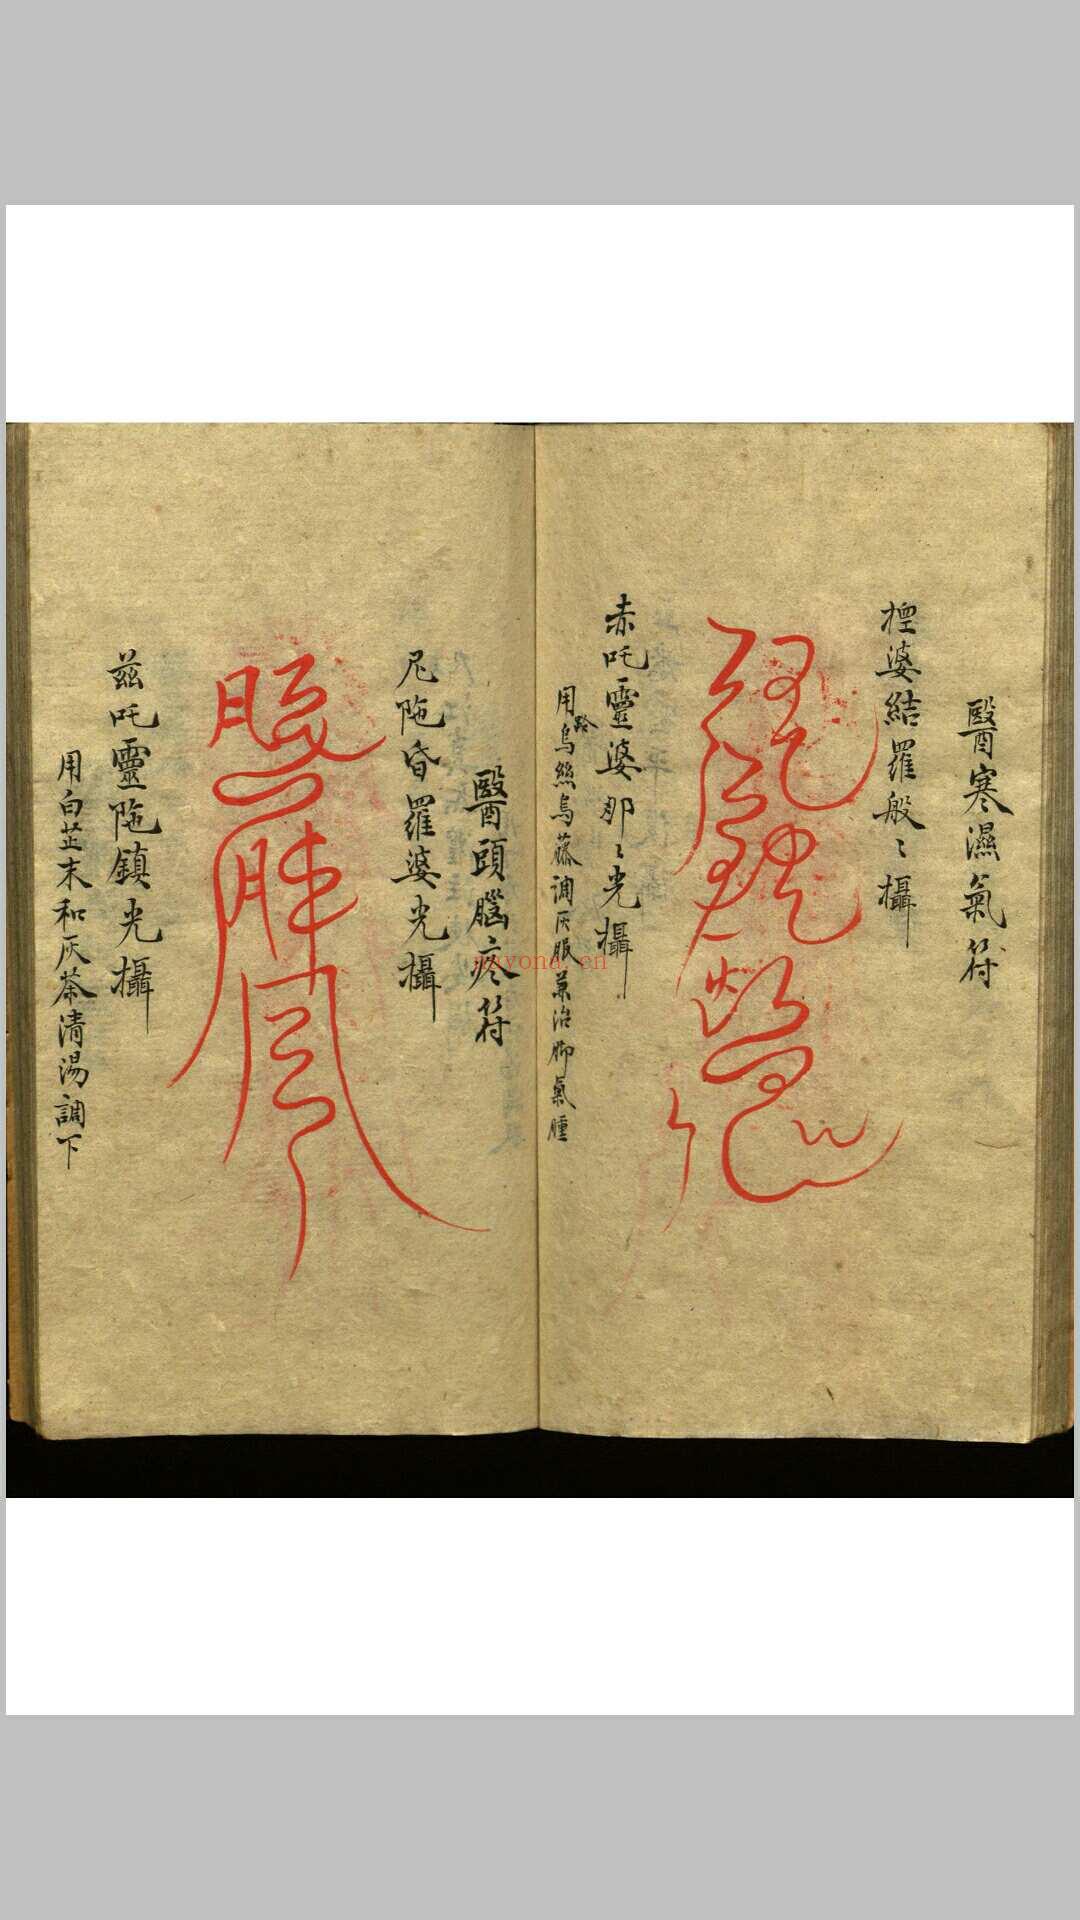 醫寒濕氣符
婆結羅般〻攝
赤吒靈婆那〻光攝
用烏絲烏藤調灰服兼治腳氣腫
醫頭腦疼符
尼陁昏羅婆光攝
茲吒靈陁鎮光攝
用白芷末和灰茶清湯調下
nayona.cn